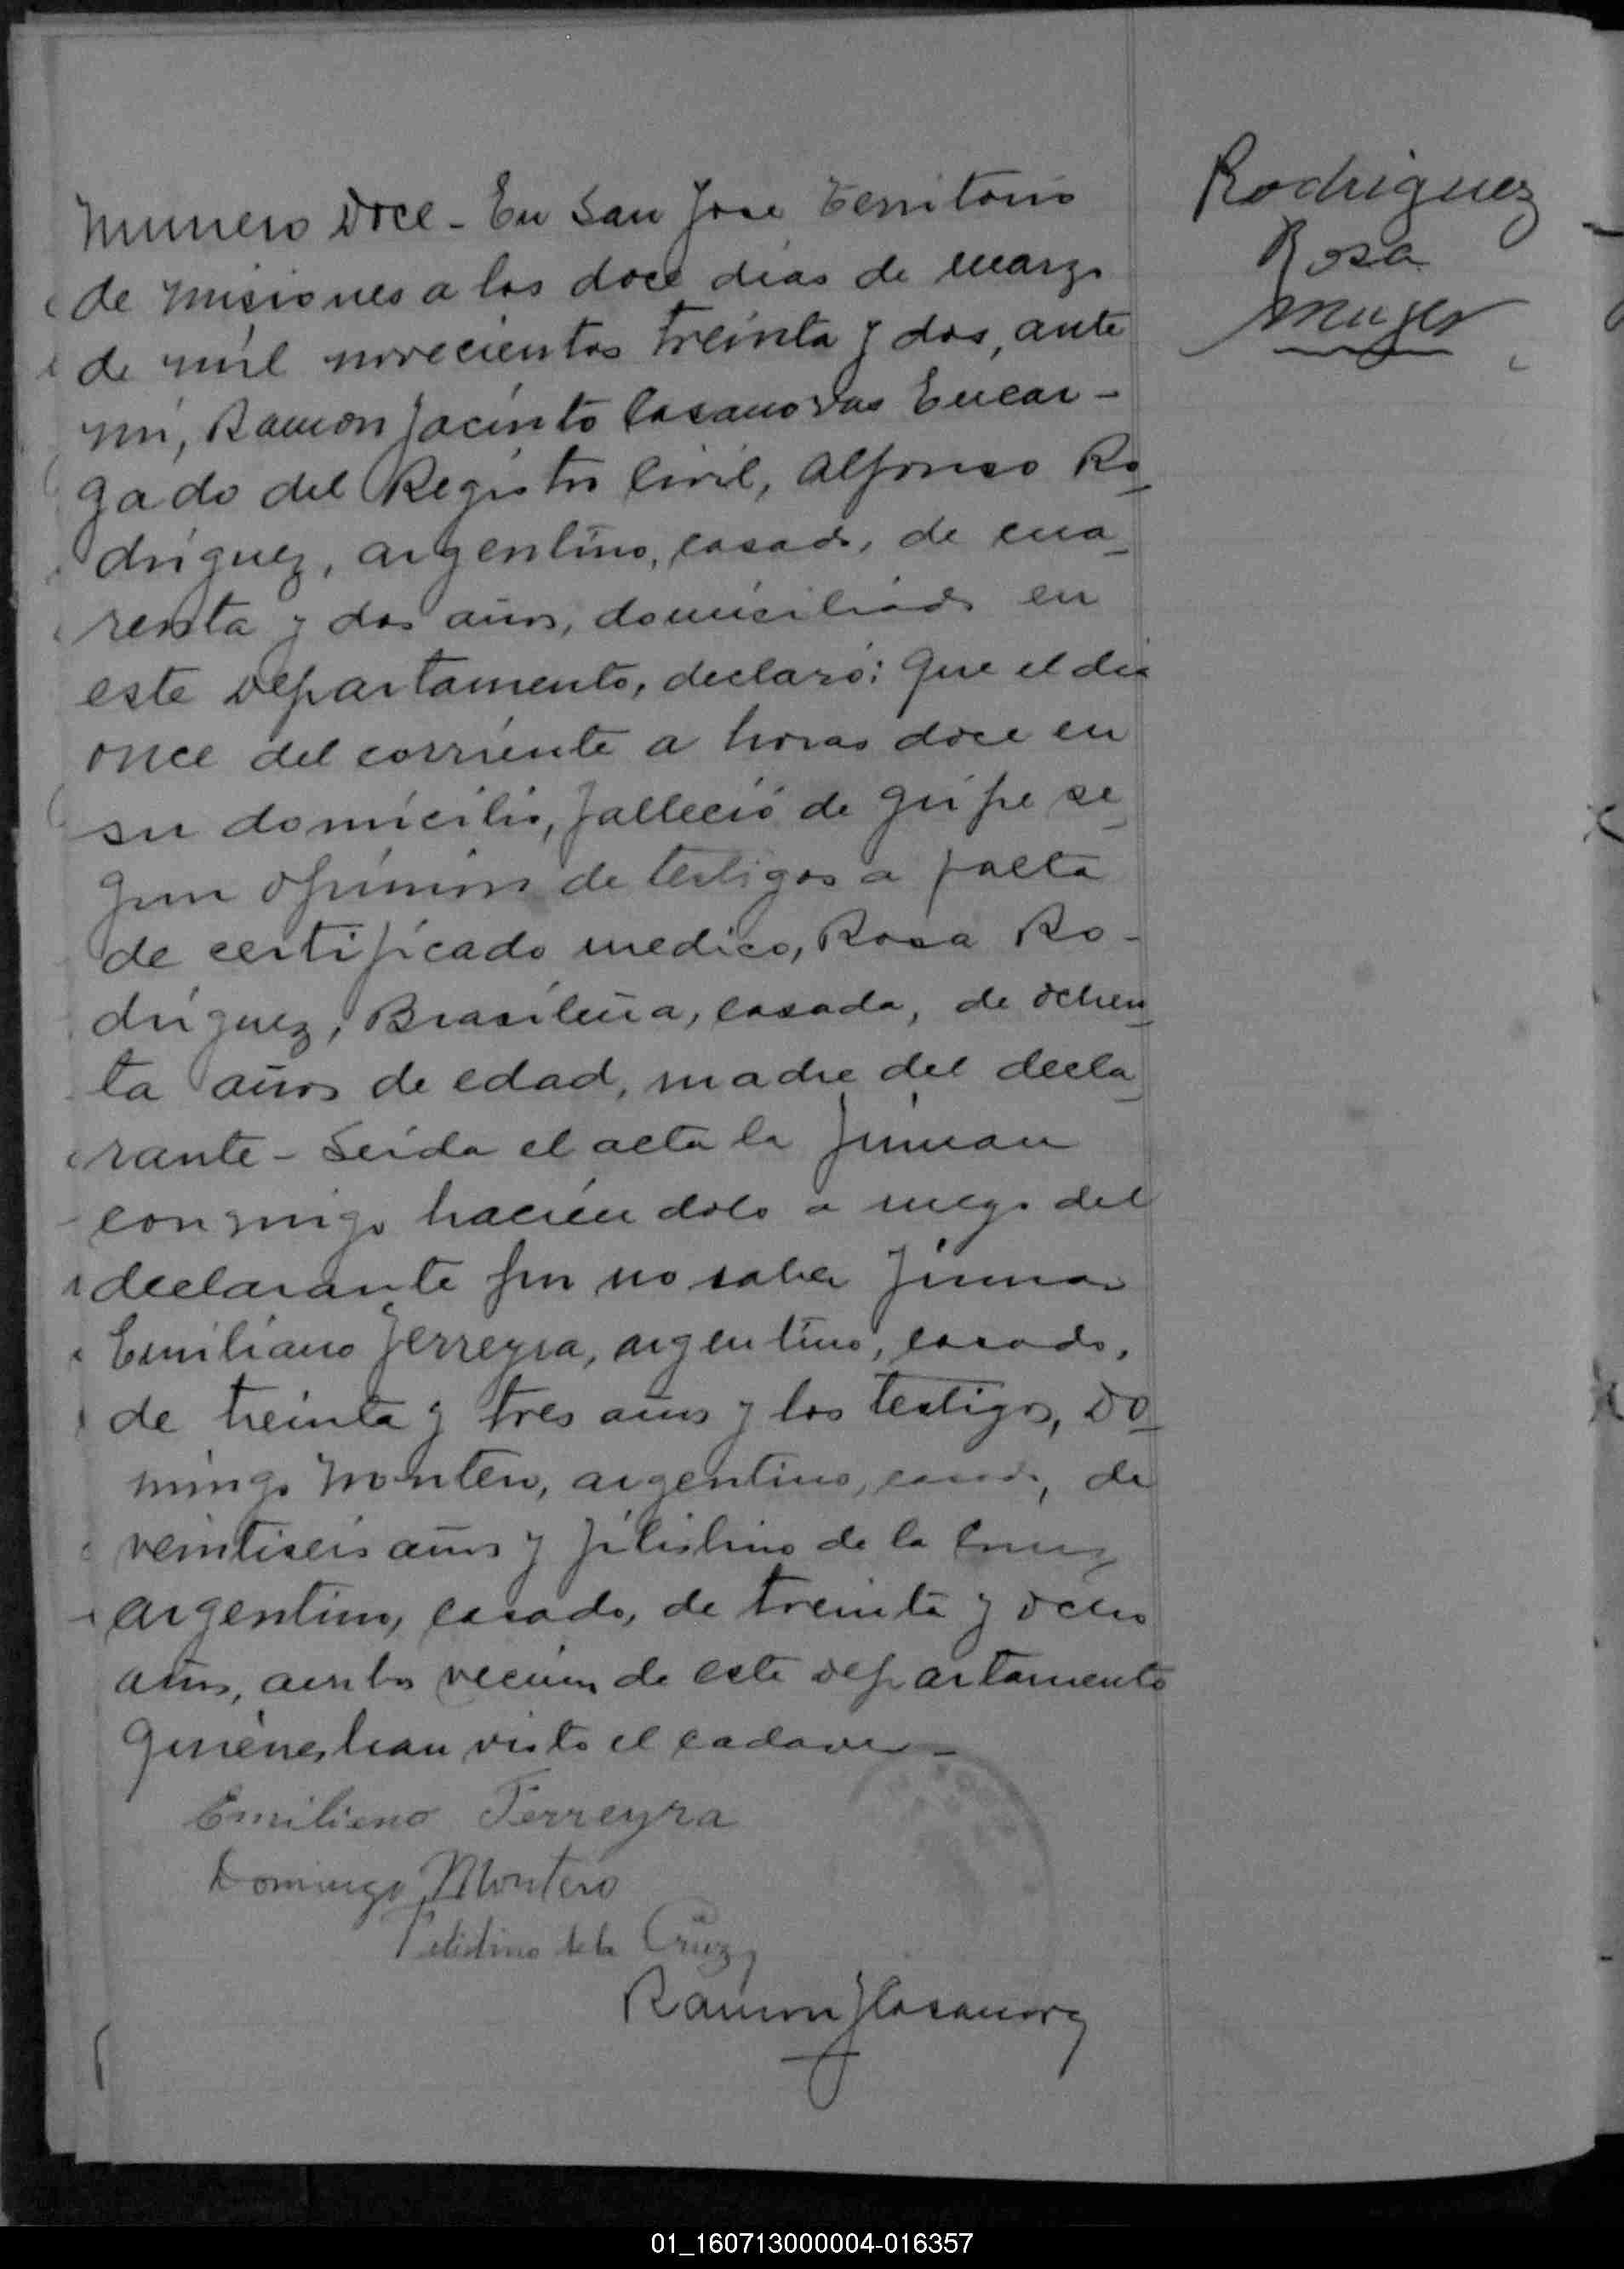 Rodriguez
Rosa
Mujer
Numero Doce - En San Jose Territorio
de Misiones a los doce dias de marzo
de mil novecientos treinta y dos, ante
mi, Ramon Jacinto Casanovas Encar-
gado del Registro Civil, Alfonso Ro-
driguez, argentino, casado, de cua-
renta y dos años, domiciliado en
este Departamento, declaró: Que el dia
once del corriente a horas doce en
su domicilio, falleció de gripe se-
gun opinion de testigos a falta
de certificado medico, Rosa Ro-
driguez, Brasileña, casada, de ochen-
ta años de edad, madre del decla-
rante - Leida el acta la firman
conmigo haciendolo a ruego del
declarante por no saber firmar
Emiliano Ferreyra, argentino, casado,
de treinta y tres años y los testigos, Do-
mingo Montero, argentino, casado, de
veintiseis años y de la Cruz
argentino, casado, de treinta y ocho
años, ambos vecinos de este Departamento
quienes han visto el cadaver -
Emiliano Ferreyra
Domingo Montero
de la Cruz
Ramon J Casanovas
01_160713000004-016357